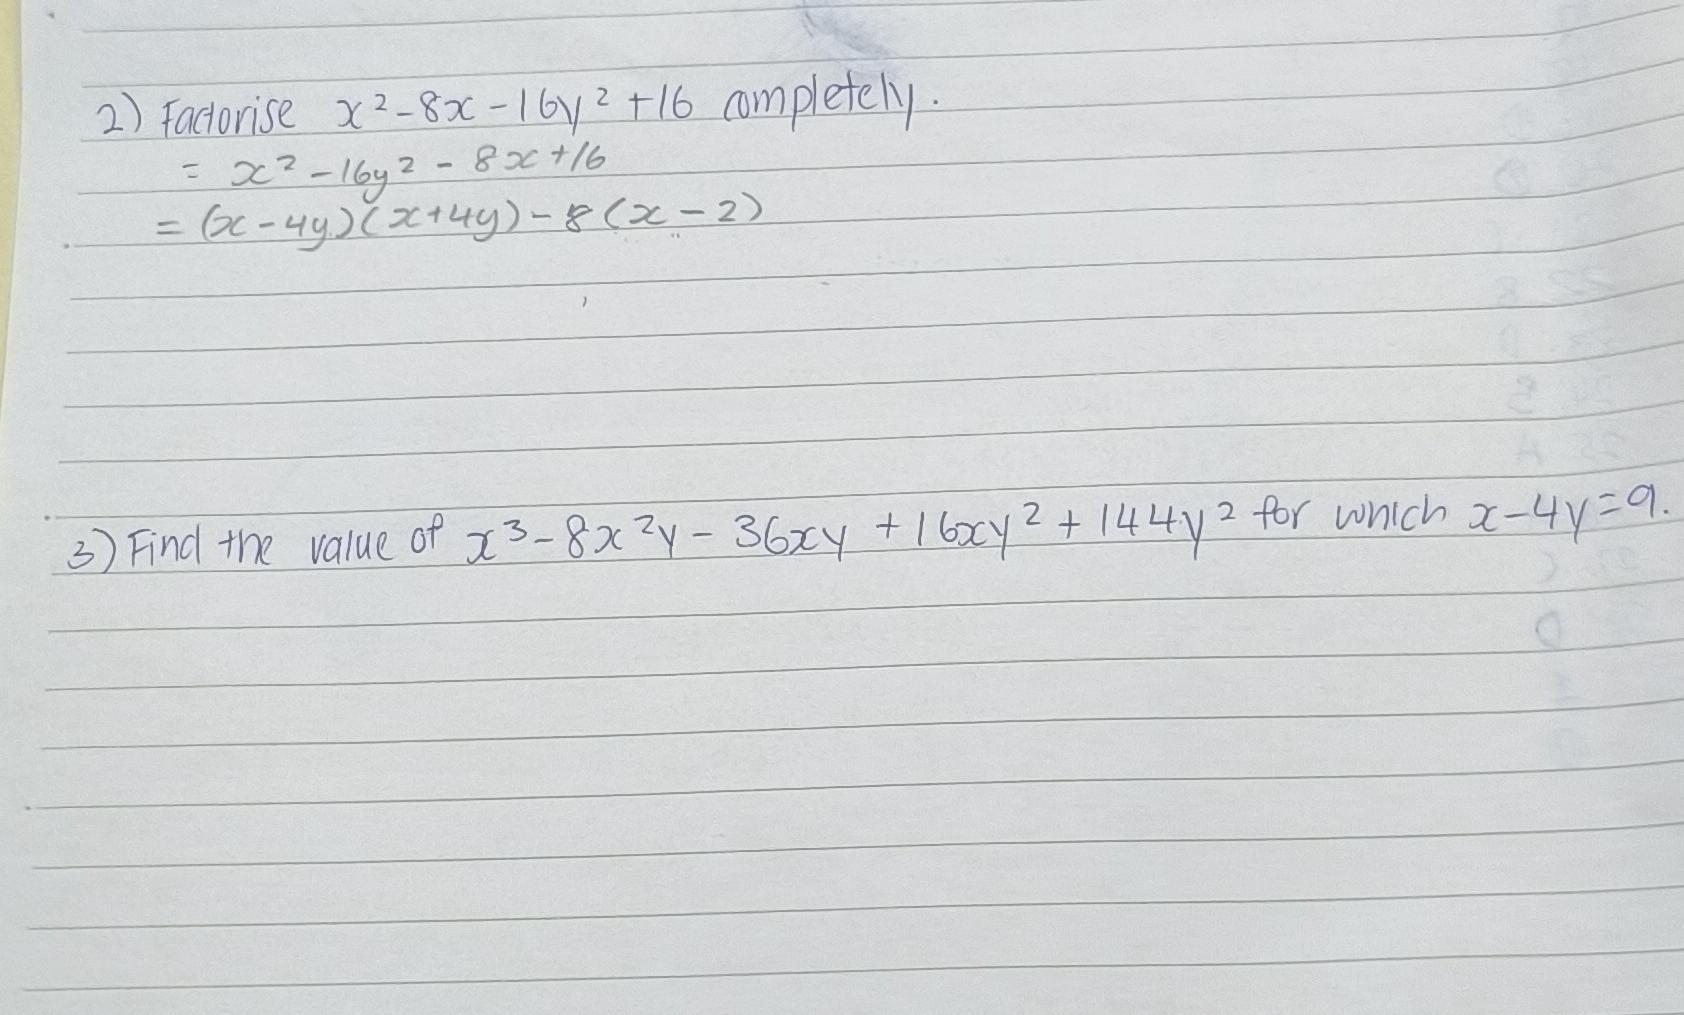 2) Factorise x² - 8x - 16y² + 16 completely.
= x² - 16y² - 8x + 16
= (x - 4y)(x + 4y) - 8(x - 2)
3) Find the value of x³ - 8x²y - 36xy + 16xy² + 144y² for which x - 4y = 9.